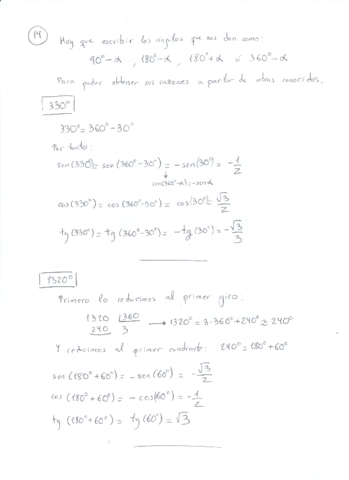 14 Hay que escribir los ángulos que nos dan como:
90°-α , 180°-α , 180°+α ó 360°-α
Para poder obtener sus razones a partir de otras conocidas.
330°
330°=360°-30°
Por tanto:
sen(330)=sen(360°-30°)=-sen(30°)=-1/2
sen(360°-α)=-senα
cos(330°)=cos(360°-30°)=cos(30°)=√3/2
tg(330°)=tg(360°-30°)=-tg(30°)=-√3/3
1320°
Primero lo reducimos al primer giro:
1320 |360
240 3 → 1320°=3·360°+240°≅240°
Y reducimos al primer cuadrante: 240°=180°+60°
sen(180°+60°)=-sen(60°)=-√3/2
cos(180°+60°)=-cos(60°)=-1/2
tg(180°+60°)=tg(60°)=√3